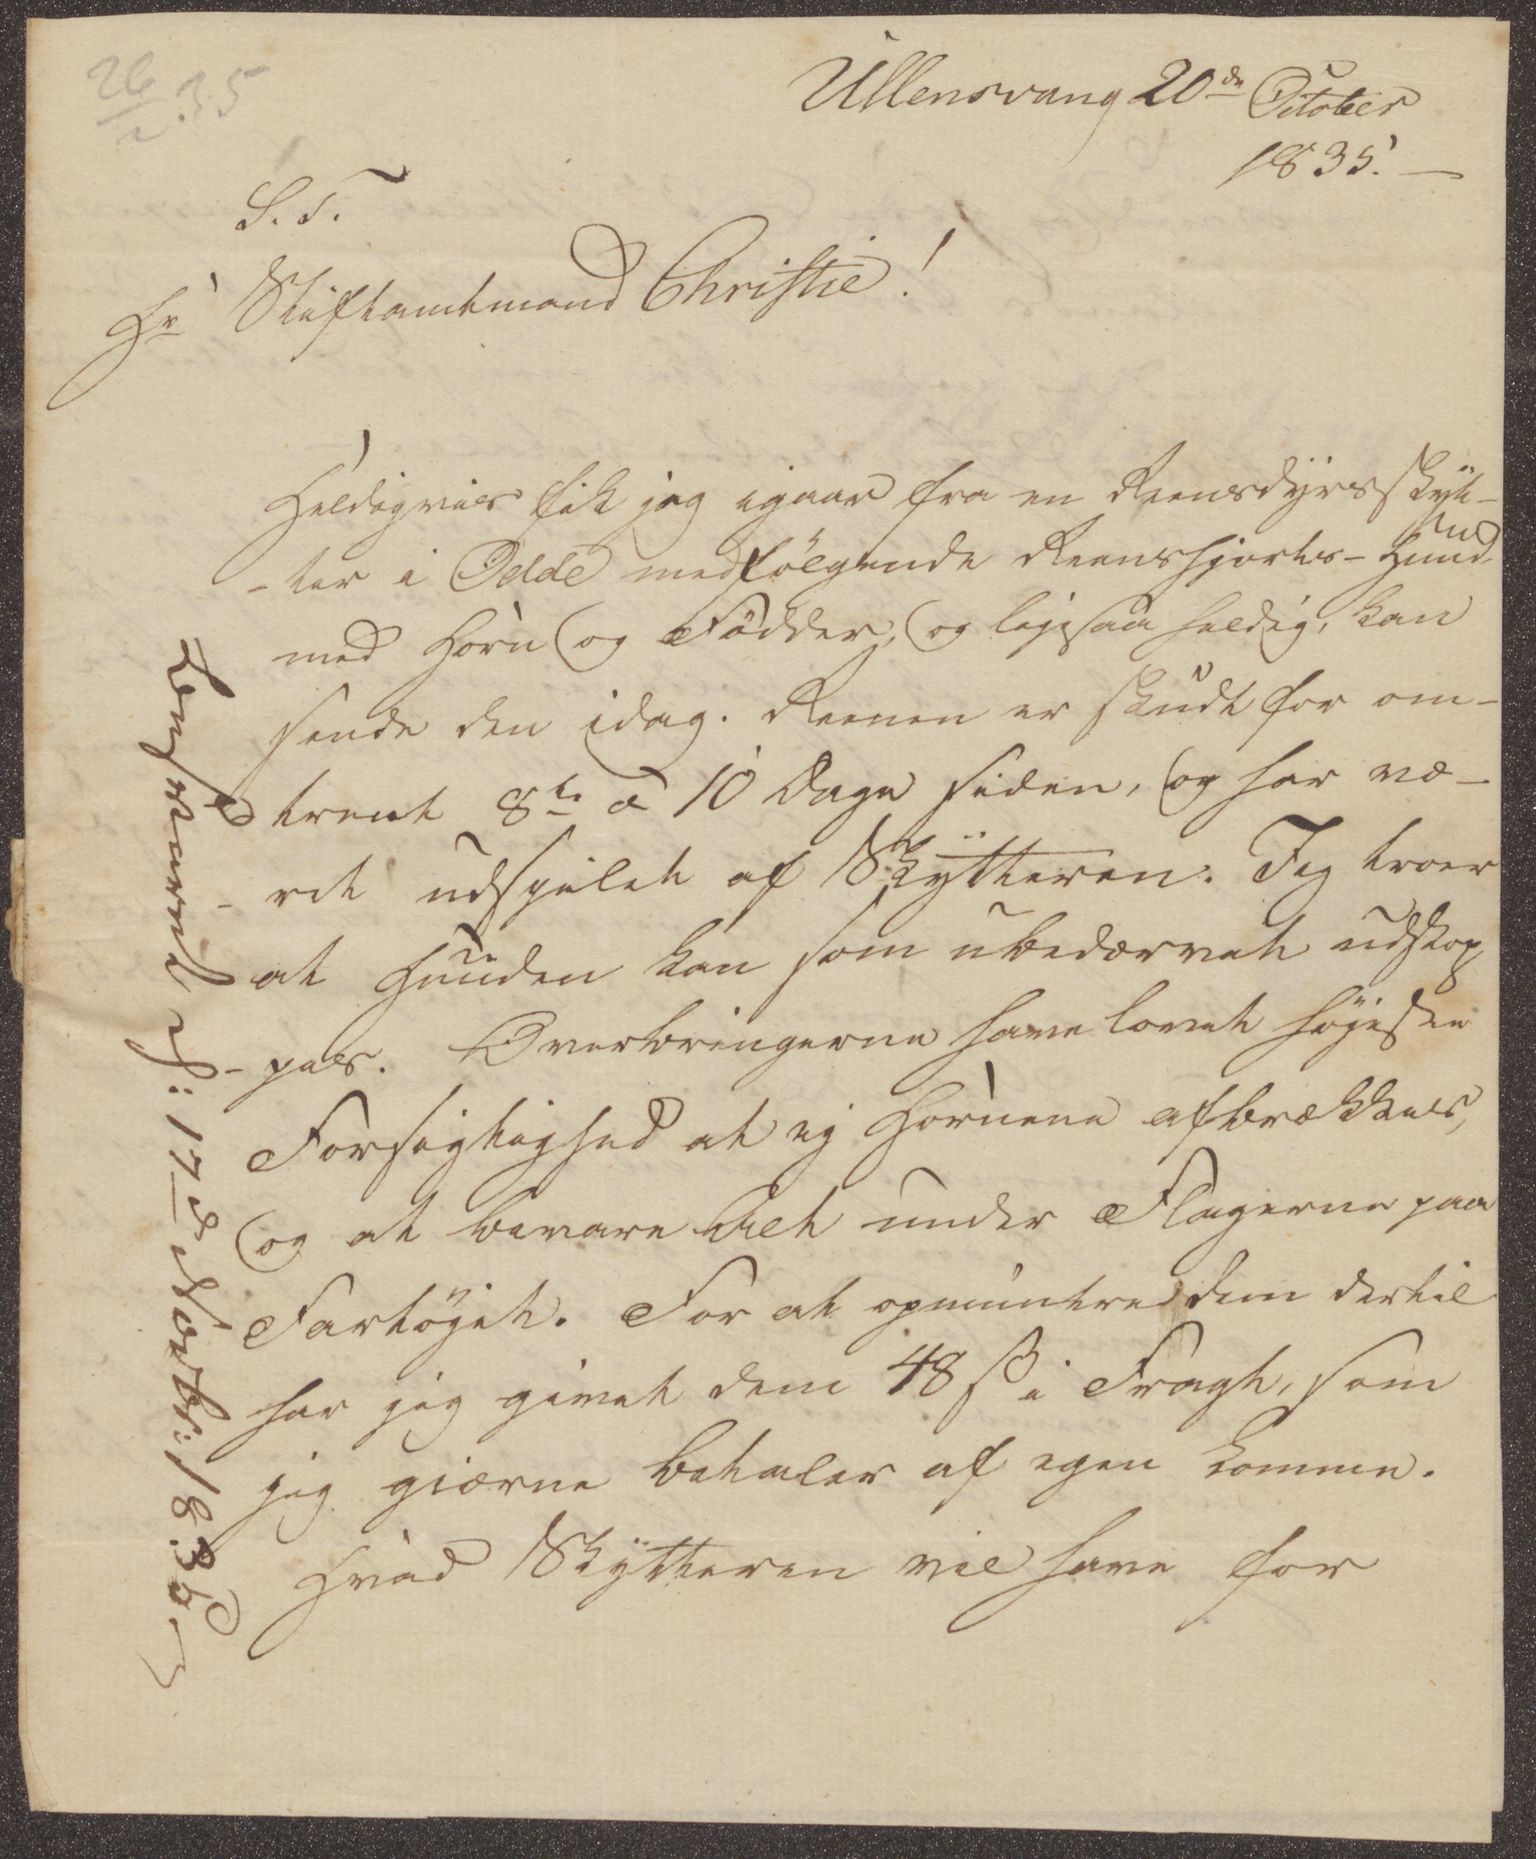 26/2.35
Ullensvang 20de October
1835. —
S. T.
Hr Stiftamtmand Christie!
Heldigviis fik jeg igaar fra en Reensdyrsskyt-
-ter i Odde medfølgende Reenshjorts-Huud
med Horn og Fødder, og ligesaa heldig, kan
sende den idag. Reenen er skudt for om-
trent 8te a 10 Dage siden, og har væ-
-ret udspilet af Skytteren. Jeg troer
at Huuden kan som ubedærvet udstop
-pes. Overbringerne have lovet højeste
Forsigtighed at ej Hornene afbrækkes,
og at bevare Alt under Flagerne paa
Fartøjet. For at opmuntre dem dertil
har jeg givet dem 48 ß i Fragt, som
jeg giærne betaler af egen Lomme.
Hvad Skytteren vil have for
Besvaret d: 17de Novbr: 1835